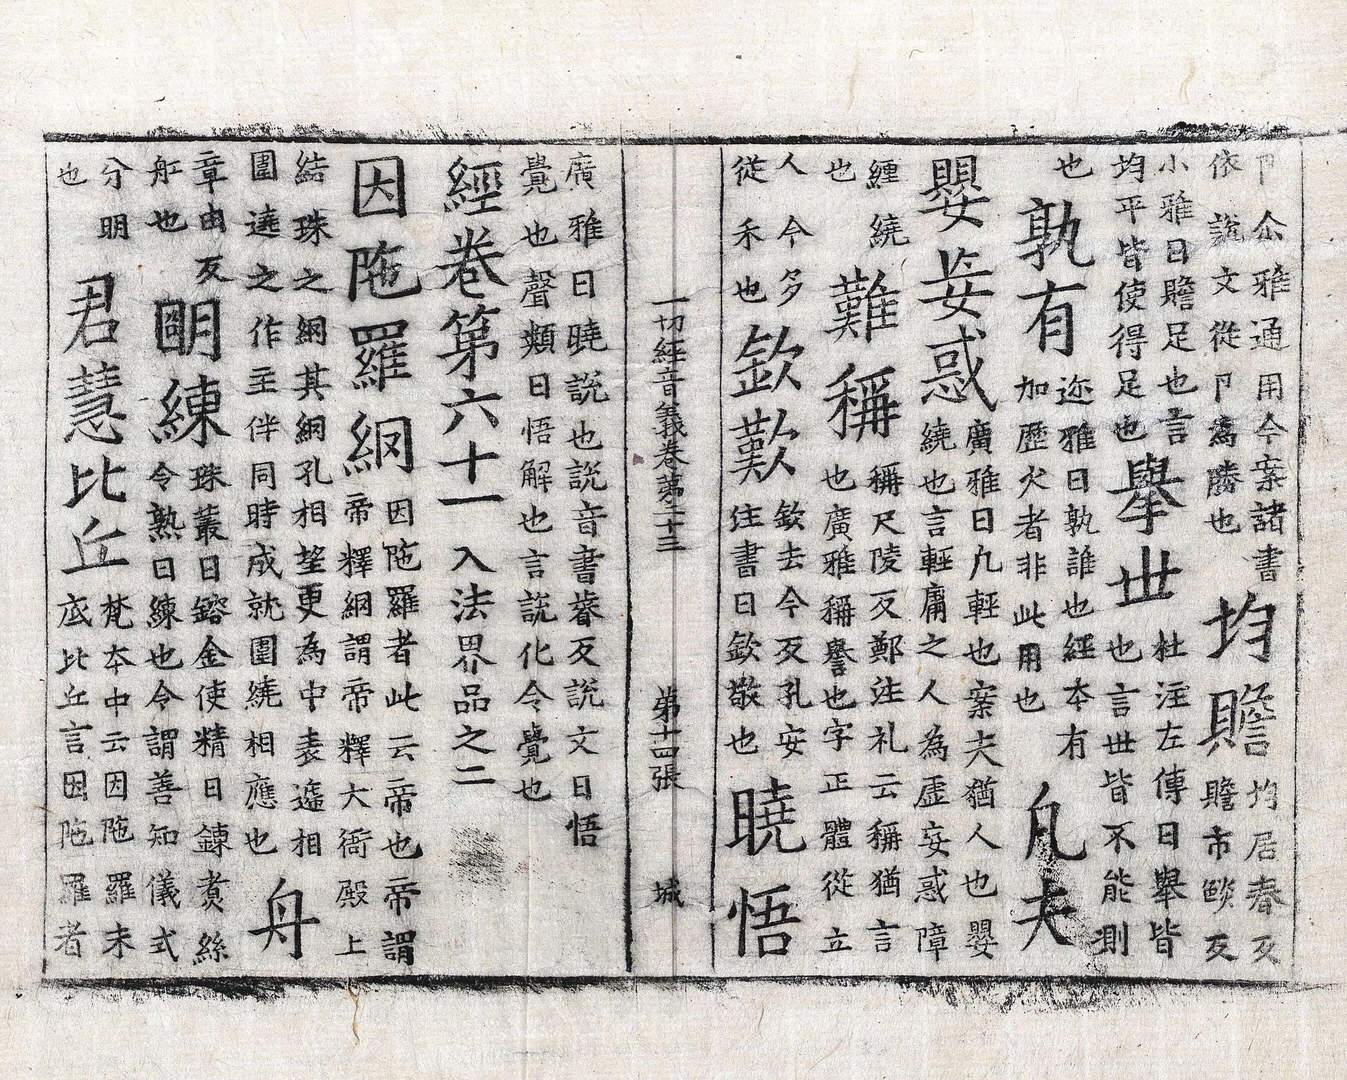 卩尒雅通用今案諸書
依說文從卩為勝也
均贍
均居春反
贍市䑏反
小雅曰贍足也言
均平皆使得足也
舉世
杜注左傳曰舉皆
也言世皆不能測
也
孰有
迩雅曰孰誰也經本有
加歷火者非此用也
凡夫
嬰妄惑
廣雅曰凡輕也案夫猶人也嬰
繞也言輕庸之人為虛妄惑障
纏繞
也
難稱
稱尺陵反鄭注礼云稱猶言
也廣雅稱譽也字正體從立
人今多
從禾也
欽歎
欽去今反孔安
注書曰欽敬也
曉悟
一切經音義卷第二十三 第十四張 城
廣雅曰曉說也說音書睿反說文曰悟
覺也聲類曰悟解也言說化令覺也
經卷第六十一 入法界品之二
因陁羅網
因陁羅者此云帝也帝謂
帝釋網謂帝釋大衙殿上
結珠之網其網孔相望更為中表遞相
圍遶之作主伴同時成就圍繞相應也
舟
章由反
舡也
明練
珠叢曰鎔金使精曰鍊煑絲
令熟曰練也今謂善知儀式
分明
也
君慧比丘
梵本中云因陁羅未
底比丘言因陁羅者